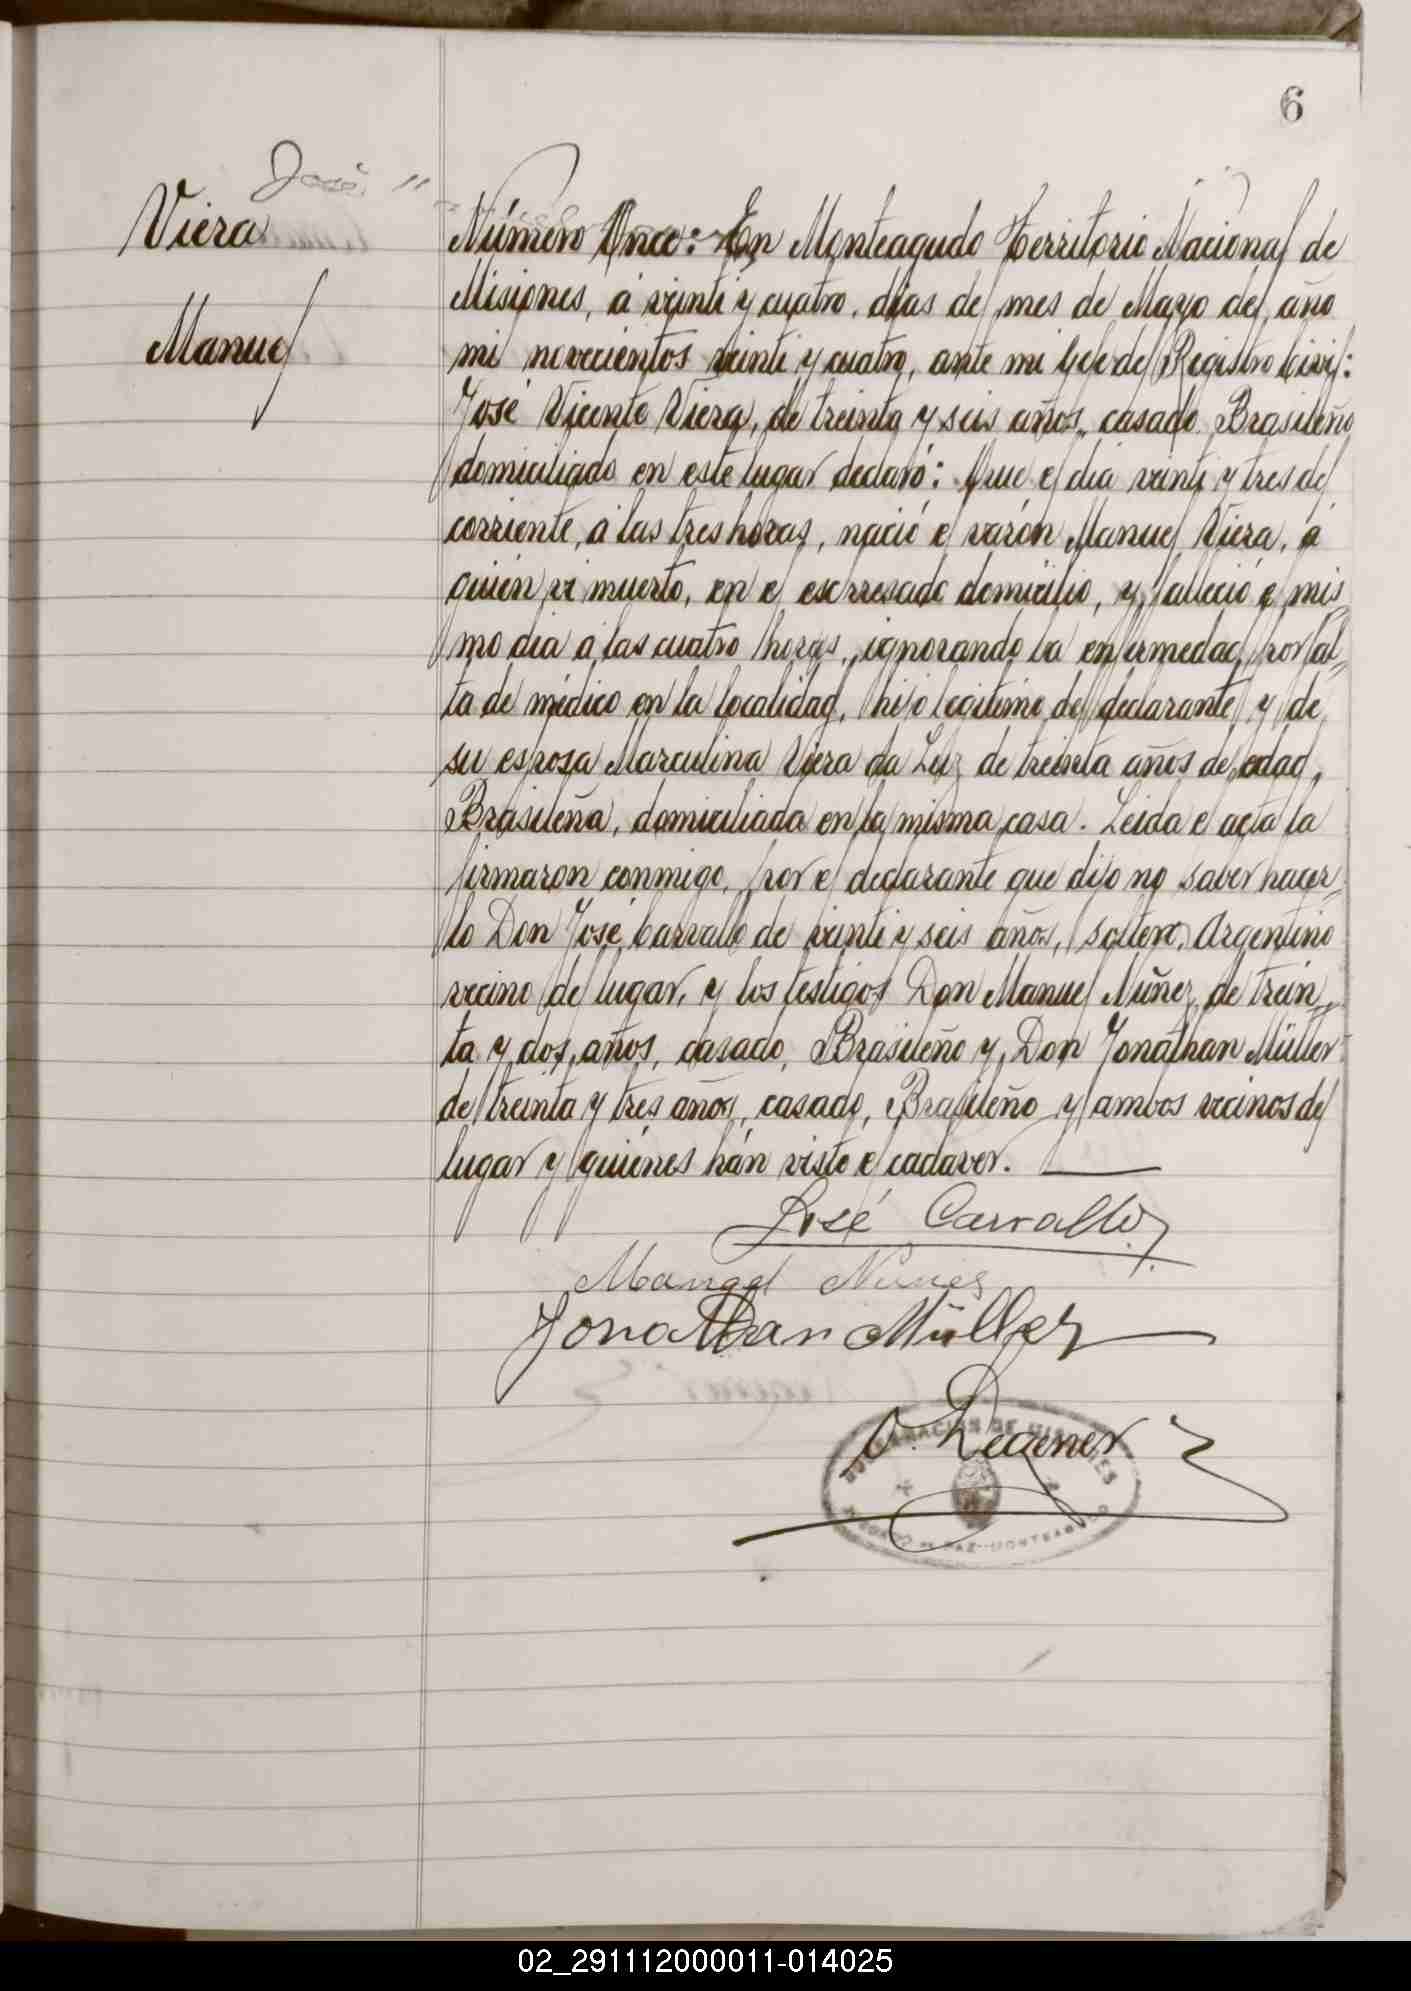 6
José "
Viera
Manuel
Número Once: En Monteagudo Territorio Nacional de
Misiones, á veinti y cuatro dias del mes de Mayo del año
mil novecientos veinti y cuatro, ante mi Jefe del Registro Civil:
José Vicente Viera, de treinta y seis años, casado Brasileño
domiciliado en este lugar declaró: Que el dia veinti y tres del
corriente, á las tres horas, nació el varón Manuel Viera, á
quién vi muerto, en el expresado domicilio, y falleció el mis-
mo dia á las cuatro horas, ignorando la enfermedad, por fal-
ta de médico en la localidad, hijo legitimo del declarante y de
su esposa Marculina Viera da Luz de treinta años de edad,
Brasileña, domiciliada en la misma casa. Leida el acta la
firmaron conmigo, por el declarante que dijo no saber hacer-
lo Don José Carvallo de veinti y seis años, soltero, Argentino
vecino del lugar, y los testigos Don Manuel Nuñez de trein-
ta y dos años, casado, Brasileño y Don Jonathan Müller
de treinta y tres años, casado, Brasileño y ambos vecinos del
lugar y quiénes hán visto el cadaver.
José Carvallo
Manoel Nunes
Jonathan Müller
O. Regener
GOBERNACION DE MISIONES
JUZGADO DE PAZ-MONTEAGUDO
02_291112000011-014025